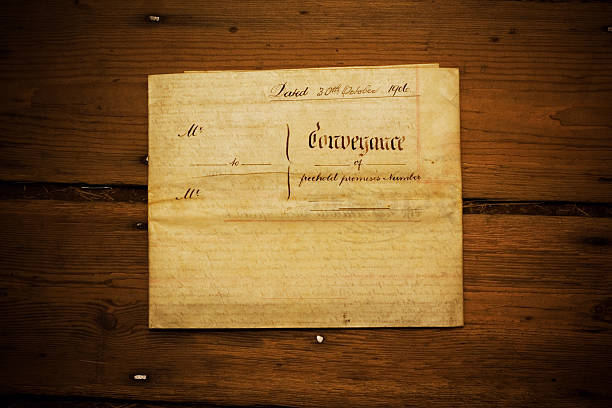 Dated 30th October 1906
Mr.
to
Mr.
Conveyance
of
freehold premises Number